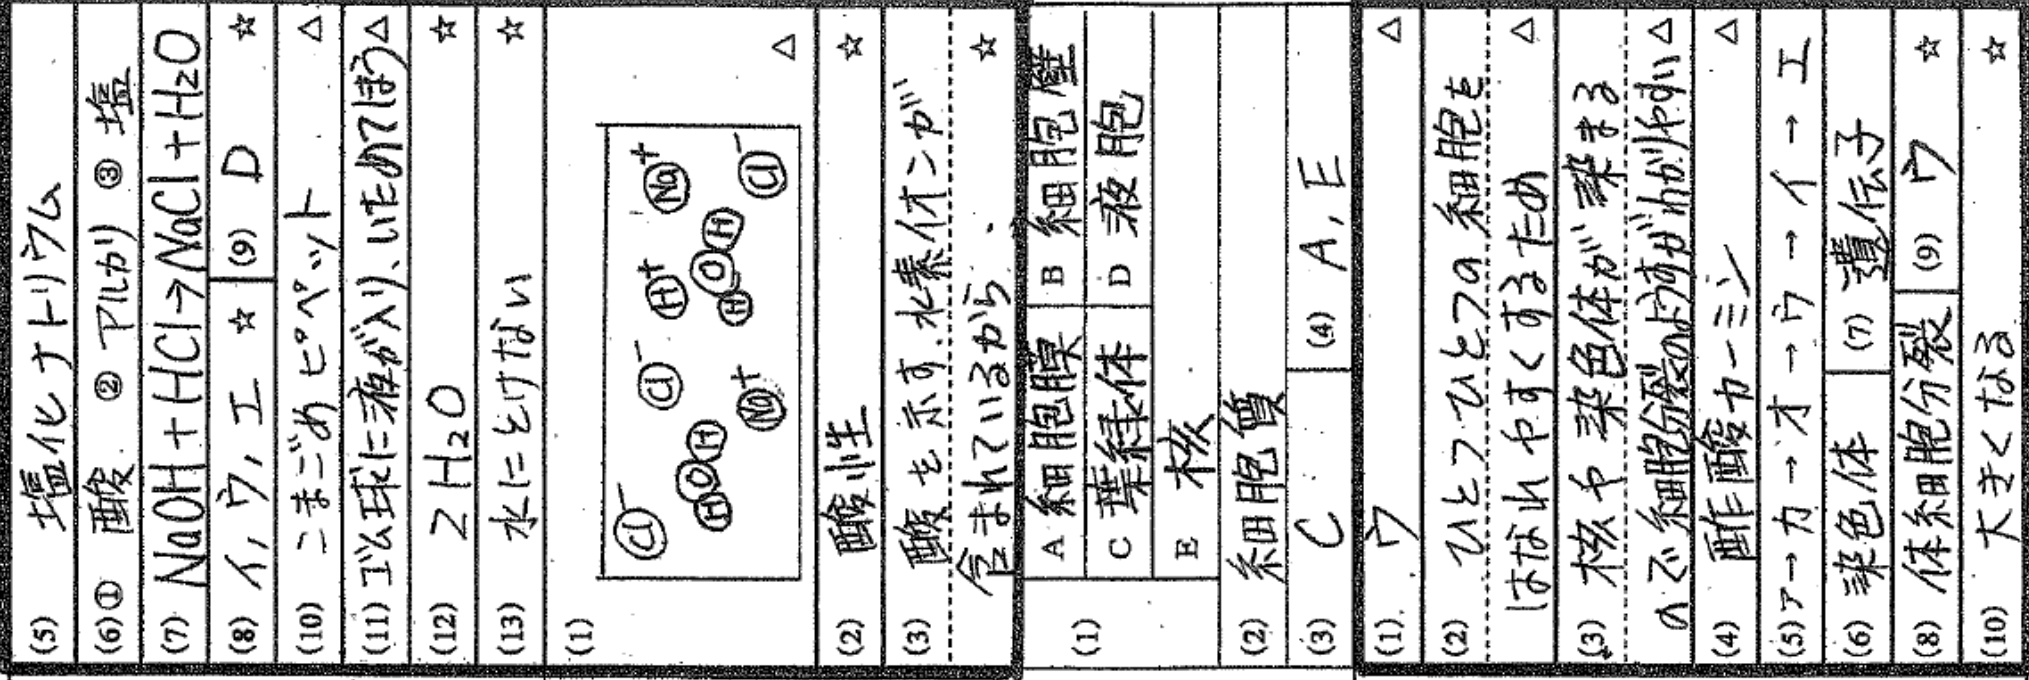 (5) 塩化ナトリウム
(6)① 酸 ② アルカリ ③ 塩
(7) NaOH + HCl → NaCl + H₂O
(8) イ, ウ, エ ☆ (9) D ☆
(10) こまごめピペット △
(11) ゴム球に液が入り、いためてしまう △
(12) 2H₂O ☆
(13) 水にとけない ☆
(1) △
Cl⁻ H O H Cl⁻ Na⁺ H⁺ H O H Na⁺ Cl⁻
(2) 酸性 ☆
(3) 酸を示す、水素イオンが
含まれているから. ☆
(1) A 細胞膜 B 細胞壁
C 葉緑体 D 液胞
E 核
(2) 細胞質
(3) C (4) A, E
(1) ウ △
(2) ひとつひとつの細胞を
はなれやすくするため △
(3) 核や染色体が染まる
ので細胞分裂のようすがわかりやすい △
(4) 酢酸カーミン △
(5) ア→カ→オ→ウ→イ→エ
(6) 染色体 (7) 遺伝子
(8) 体細胞分裂 (9) ウ ☆
(10) 大きくなる ☆